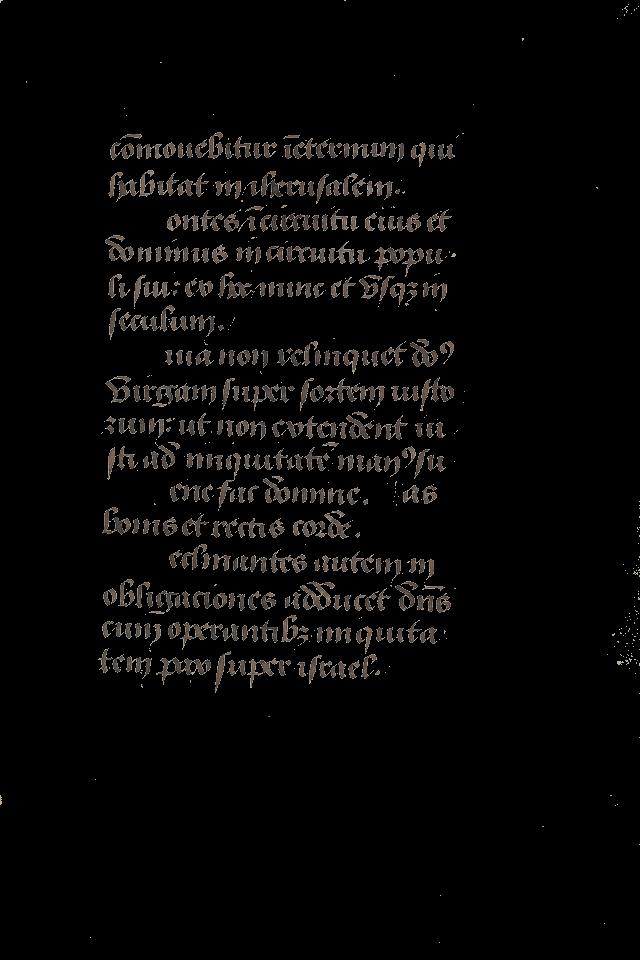 cōmouebitur īeternum qui
habitat in iherusalem.
ontes ī circuitu eius et
dominus in circuitu popu
li sui: ex hoc nunc et vsqꝫ in
seculum.
uia non relinquet doꝰ
virgam super sortem iusto
rum: ut non extendent iu
sti ad iniquitatē manꝰ su
ene fac domine. as
bonis et rectis corde.
eclinantes autem in
obligaciones adducet dn̄s
cum operantibꝫ iniquita
tem pax super israel.